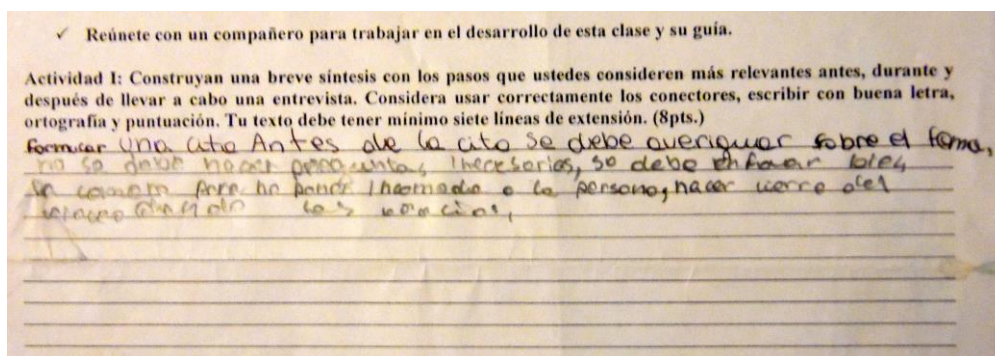 ✓ Reúnete con un compañero para trabajar en el desarrollo de esta clase y su guía.
Actividad I: Construyan una breve síntesis con los pasos que ustedes consideren más relevantes antes, durante y
después de llevar a cabo una entrevista. Considera usar correctamente los conectores, escribir con buena letra,
ortografía y puntuación. Tu texto debe tener mínimo siete líneas de extensión. (8pts.)
Formular una cita Antes de la cita se debe averiguar sobre el tema,
no se debe hacer preguntas inecesarias, se debe enfocar bien
la camara para no poner incomodo a la persona, hacer cierre del
dando las gracias,